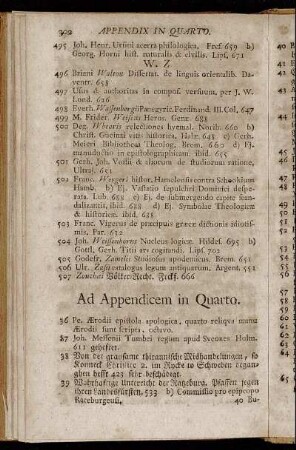 302 APPENDIX IN QUARTO.
495 Joh. Henr. Ursini acerra philologica, Fref 659 b)
Georg. Horni hist. naturalis & civilis. Lips, 671
W. Z
496 Briani Walton Dissertat. de linguis orientalib. Da-
ventr. 658
497 Usus & authoritas in compos. versuum, per J. W.
Lond. 626
498 Everh. Wassenbergii Panegyric. Ferdinand. III. Col, 647
499 M. Frider. Weisens Heros. Genr. 683
500 Deg. Whearii relectiones hyemal. Norib. 660 b)
Christ. Gothini vita historica. Halr. 648 c)
Meieri Bibliotheca Theolog. Brem. 660 d) Ej.
manuductio in epistolographicam. ibid. 658
501 Gerh. Joh. Vossii & aliorum de studiorum ratione,
Ultraj. 651
502 Franc. Wrigeri histor. Hamelensis contra Schookium
Hamb. b) Ej. Vastatio sepulchri Domitici despe-
rata. Lub. 668 e) Ej. de submergendo capite scan-
dalisantis, ibid. 668 d) Ej. Symbolae Theologicae
& historicae. ibid. 658
503 Franc. Vigerus de praecipuis graecae dictionis idiotis-
mis. Par. 632
504 Joh. Weissenbornii Nucleus logicae. Hildes. 695 b)
Gottl. Gerh. Titii ars cogitandi. Lips. 702
505 Godefr. Zamelii Studiosus apodemicus. Brem. 651
506 Ulr. Zasii catalogus legum antiquarum. Argent. 551
507 Zeschei Völker-Recht. Frckf. 666
Ad Appendicem in Quarto.
36 Pe. Ærodii epistola apologica, quarto reliqva manu
Ærodii sunt scripta. octavo.
37 Joh. Messenii Tumbæ regum apud Sveones Holm.
611 geheftet.
38 Von der graesame thirannische Mißhandelungen, so
Konneck Christice 2. im Rycke to Schweden began-
ghen hefft 523 sehr beschädigt.
39 Wahrhafftige Unterricht der Ratzeburg. Pfaffen jegen
ihren Landesfürsten, 533 b) Commissio pro episcopo
Raceburgensi,
40 Bu-